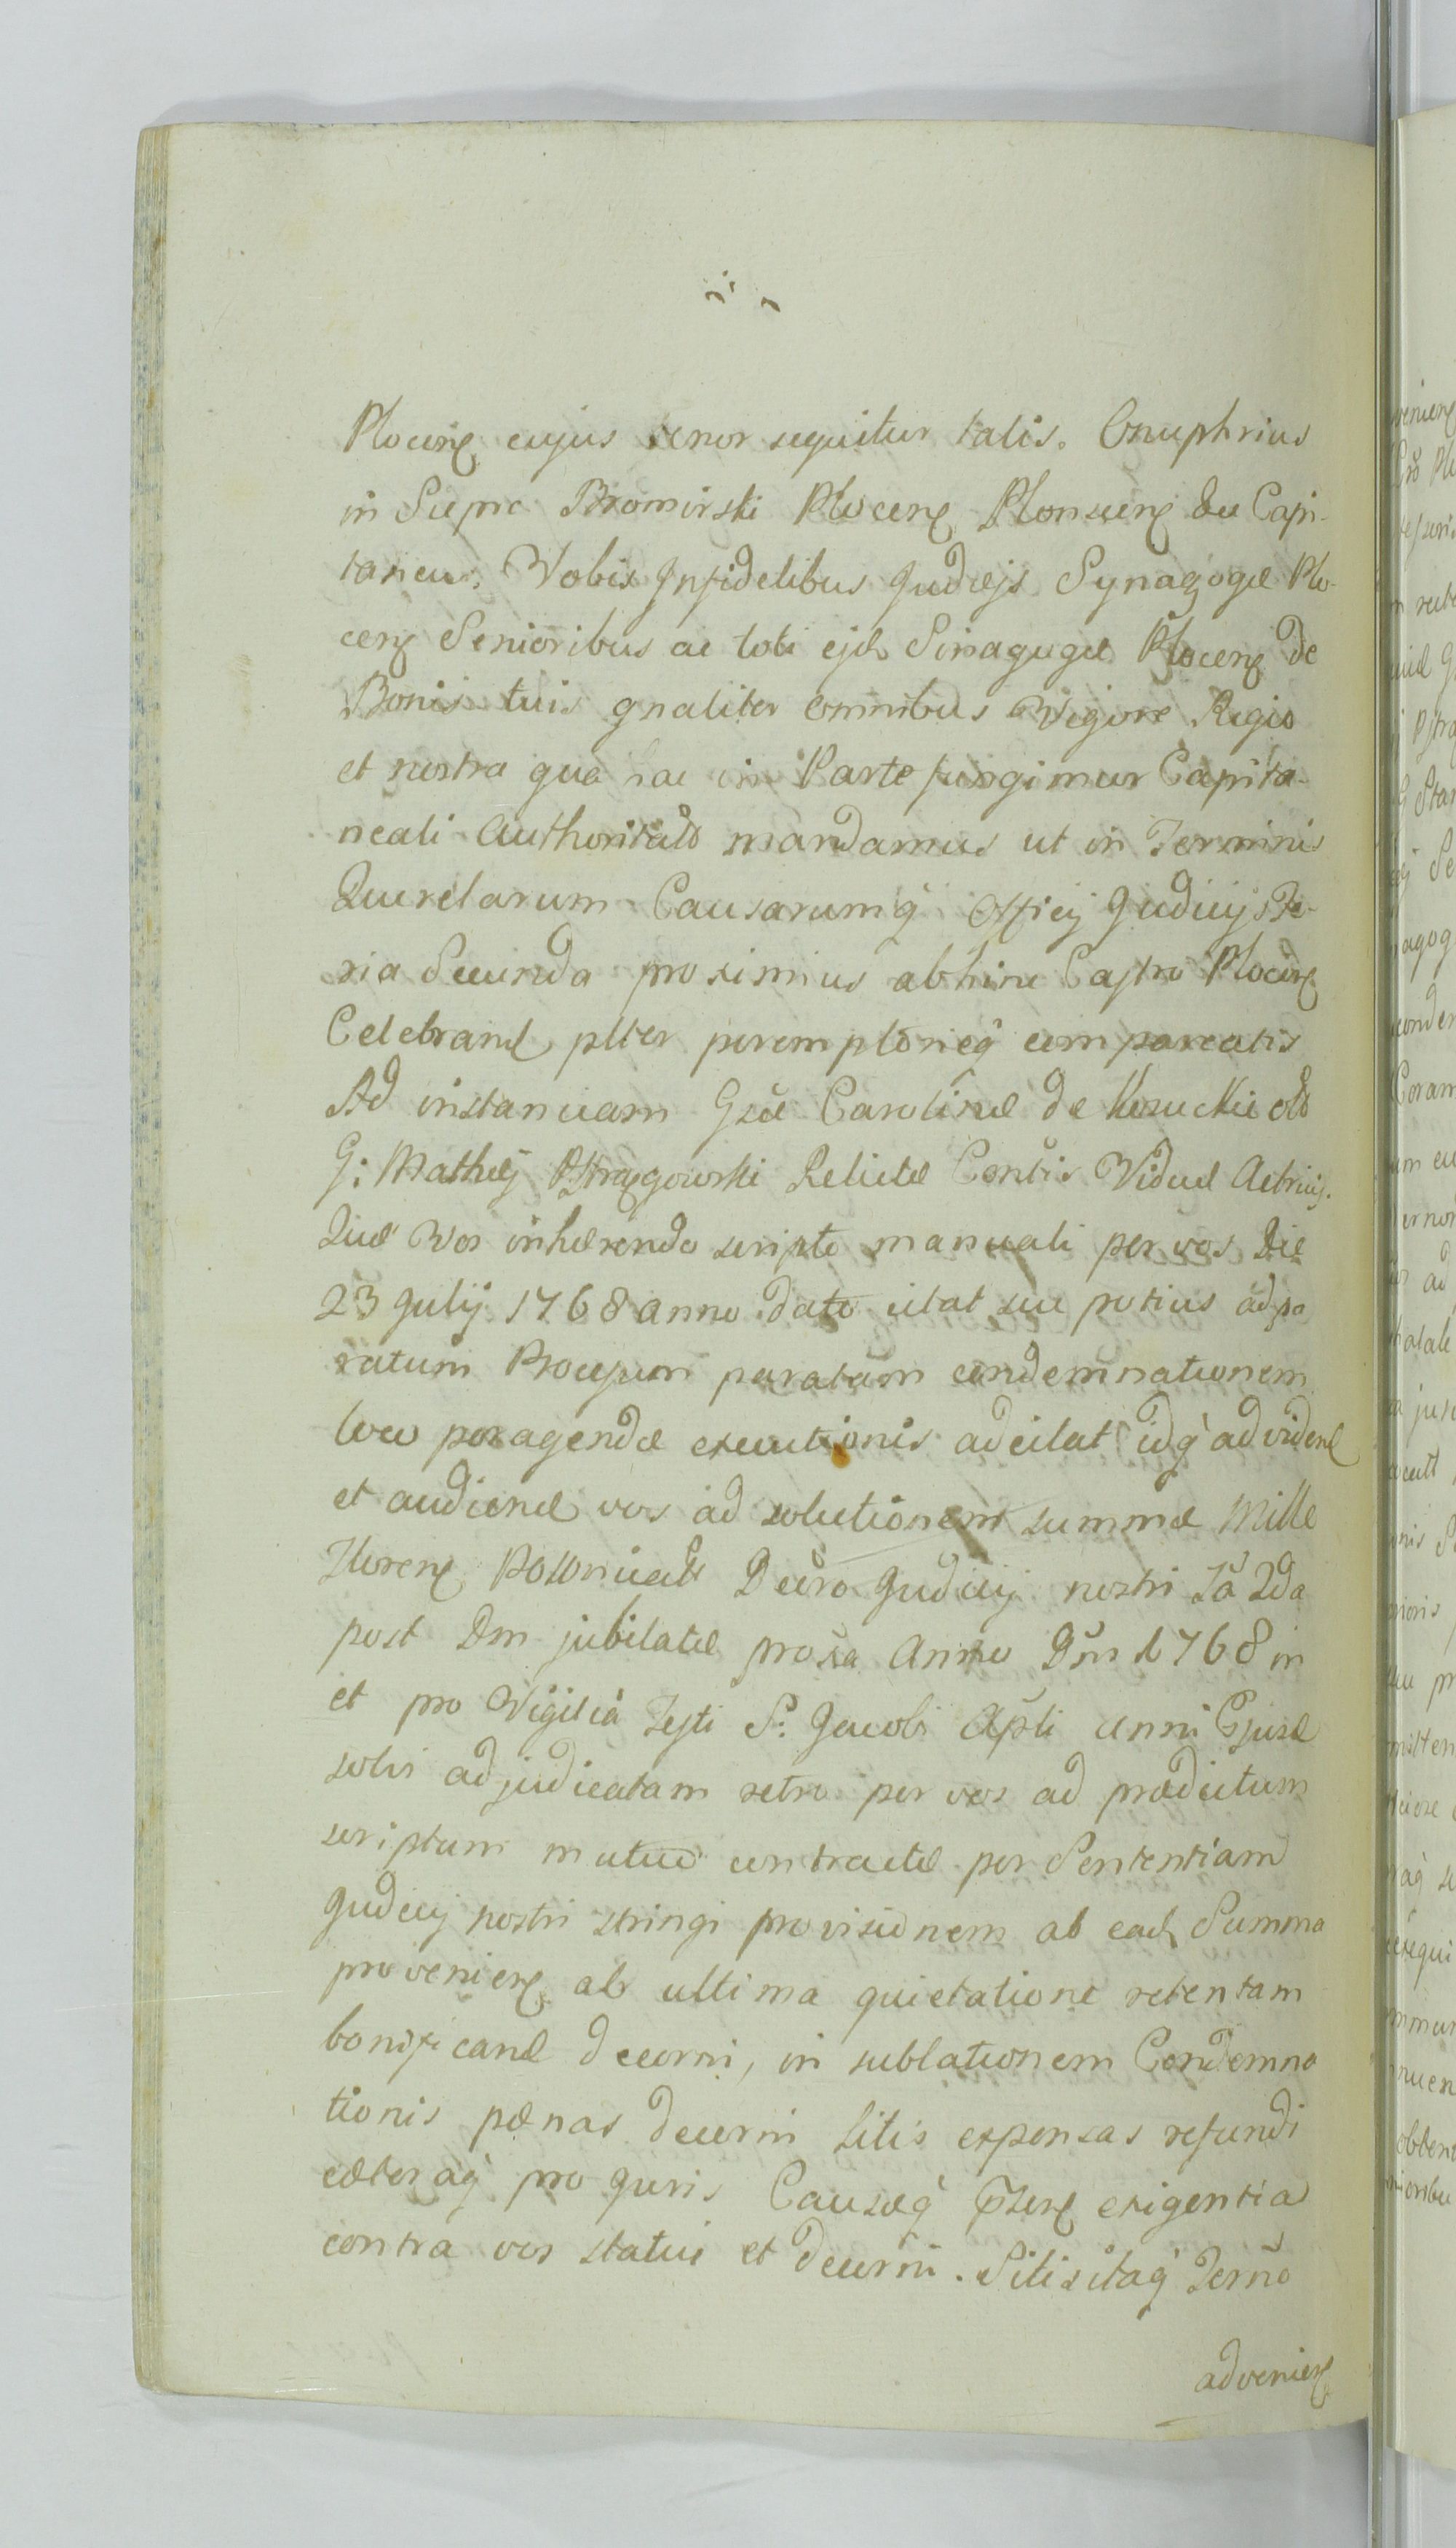 Plocens cujus tenor sequitur talis. Onuphrius
in Sieprc Bromirski Plocens Plonscens &c Capi-
taneus. Vobis Infidelibus Judæjs Synagogæ Plo-
cens Senioribus ac toti ejd Sinagogæ Plocens de
Bonis tuis gnaliter omnibus Vigore Regio
et nostra qua hac in Parte fungimur Capita-
neali Authoritate mandamus ut in Terminis
Querelarum Causarumq̀ Officij Judicij Fe-
ria Secunda proximius abhinc Castro Plocens
Celebrand plter peremptorieq̀ compareatis
Ad instanciam Gsæ Carolinæ de olo
G: Mathej Ostrzegowski Relictæ Contis Viduæ Actricis.
Quæ Vos inhærendo scripto manuali per vos Die
23 Julij 1768 anno dato citat seu potius ad pa
ratum Processum paratam condemnationem
loco peragendæ executionis adcitat idq̀ ad vidend
et audiend vos ad solutionem summæ Mille
Florens Polonicals Decro Judicij nostri Fa 2da
post Dm jubilatæ proxa Anno Dni 1768 in
et pro Vigilia Festi S: Jacobi Apli anni Ejusd
solvi adjudicatam retro per vos ad prædictum
scriptum mutuo contractæ per Sententiam
Judicij nostri stringi provisionem ab ead Summa
proveniens ab ultima quietatione retentam
bonificand decerni, in sublationem Condemna
tionis pœnas decerni Litis expensas refundi
cæteraq̀ pro Juris Causæq̀ pñsens exigentia
contra vos statui et decerni. Sitis itaq̀ Termo
adveniens